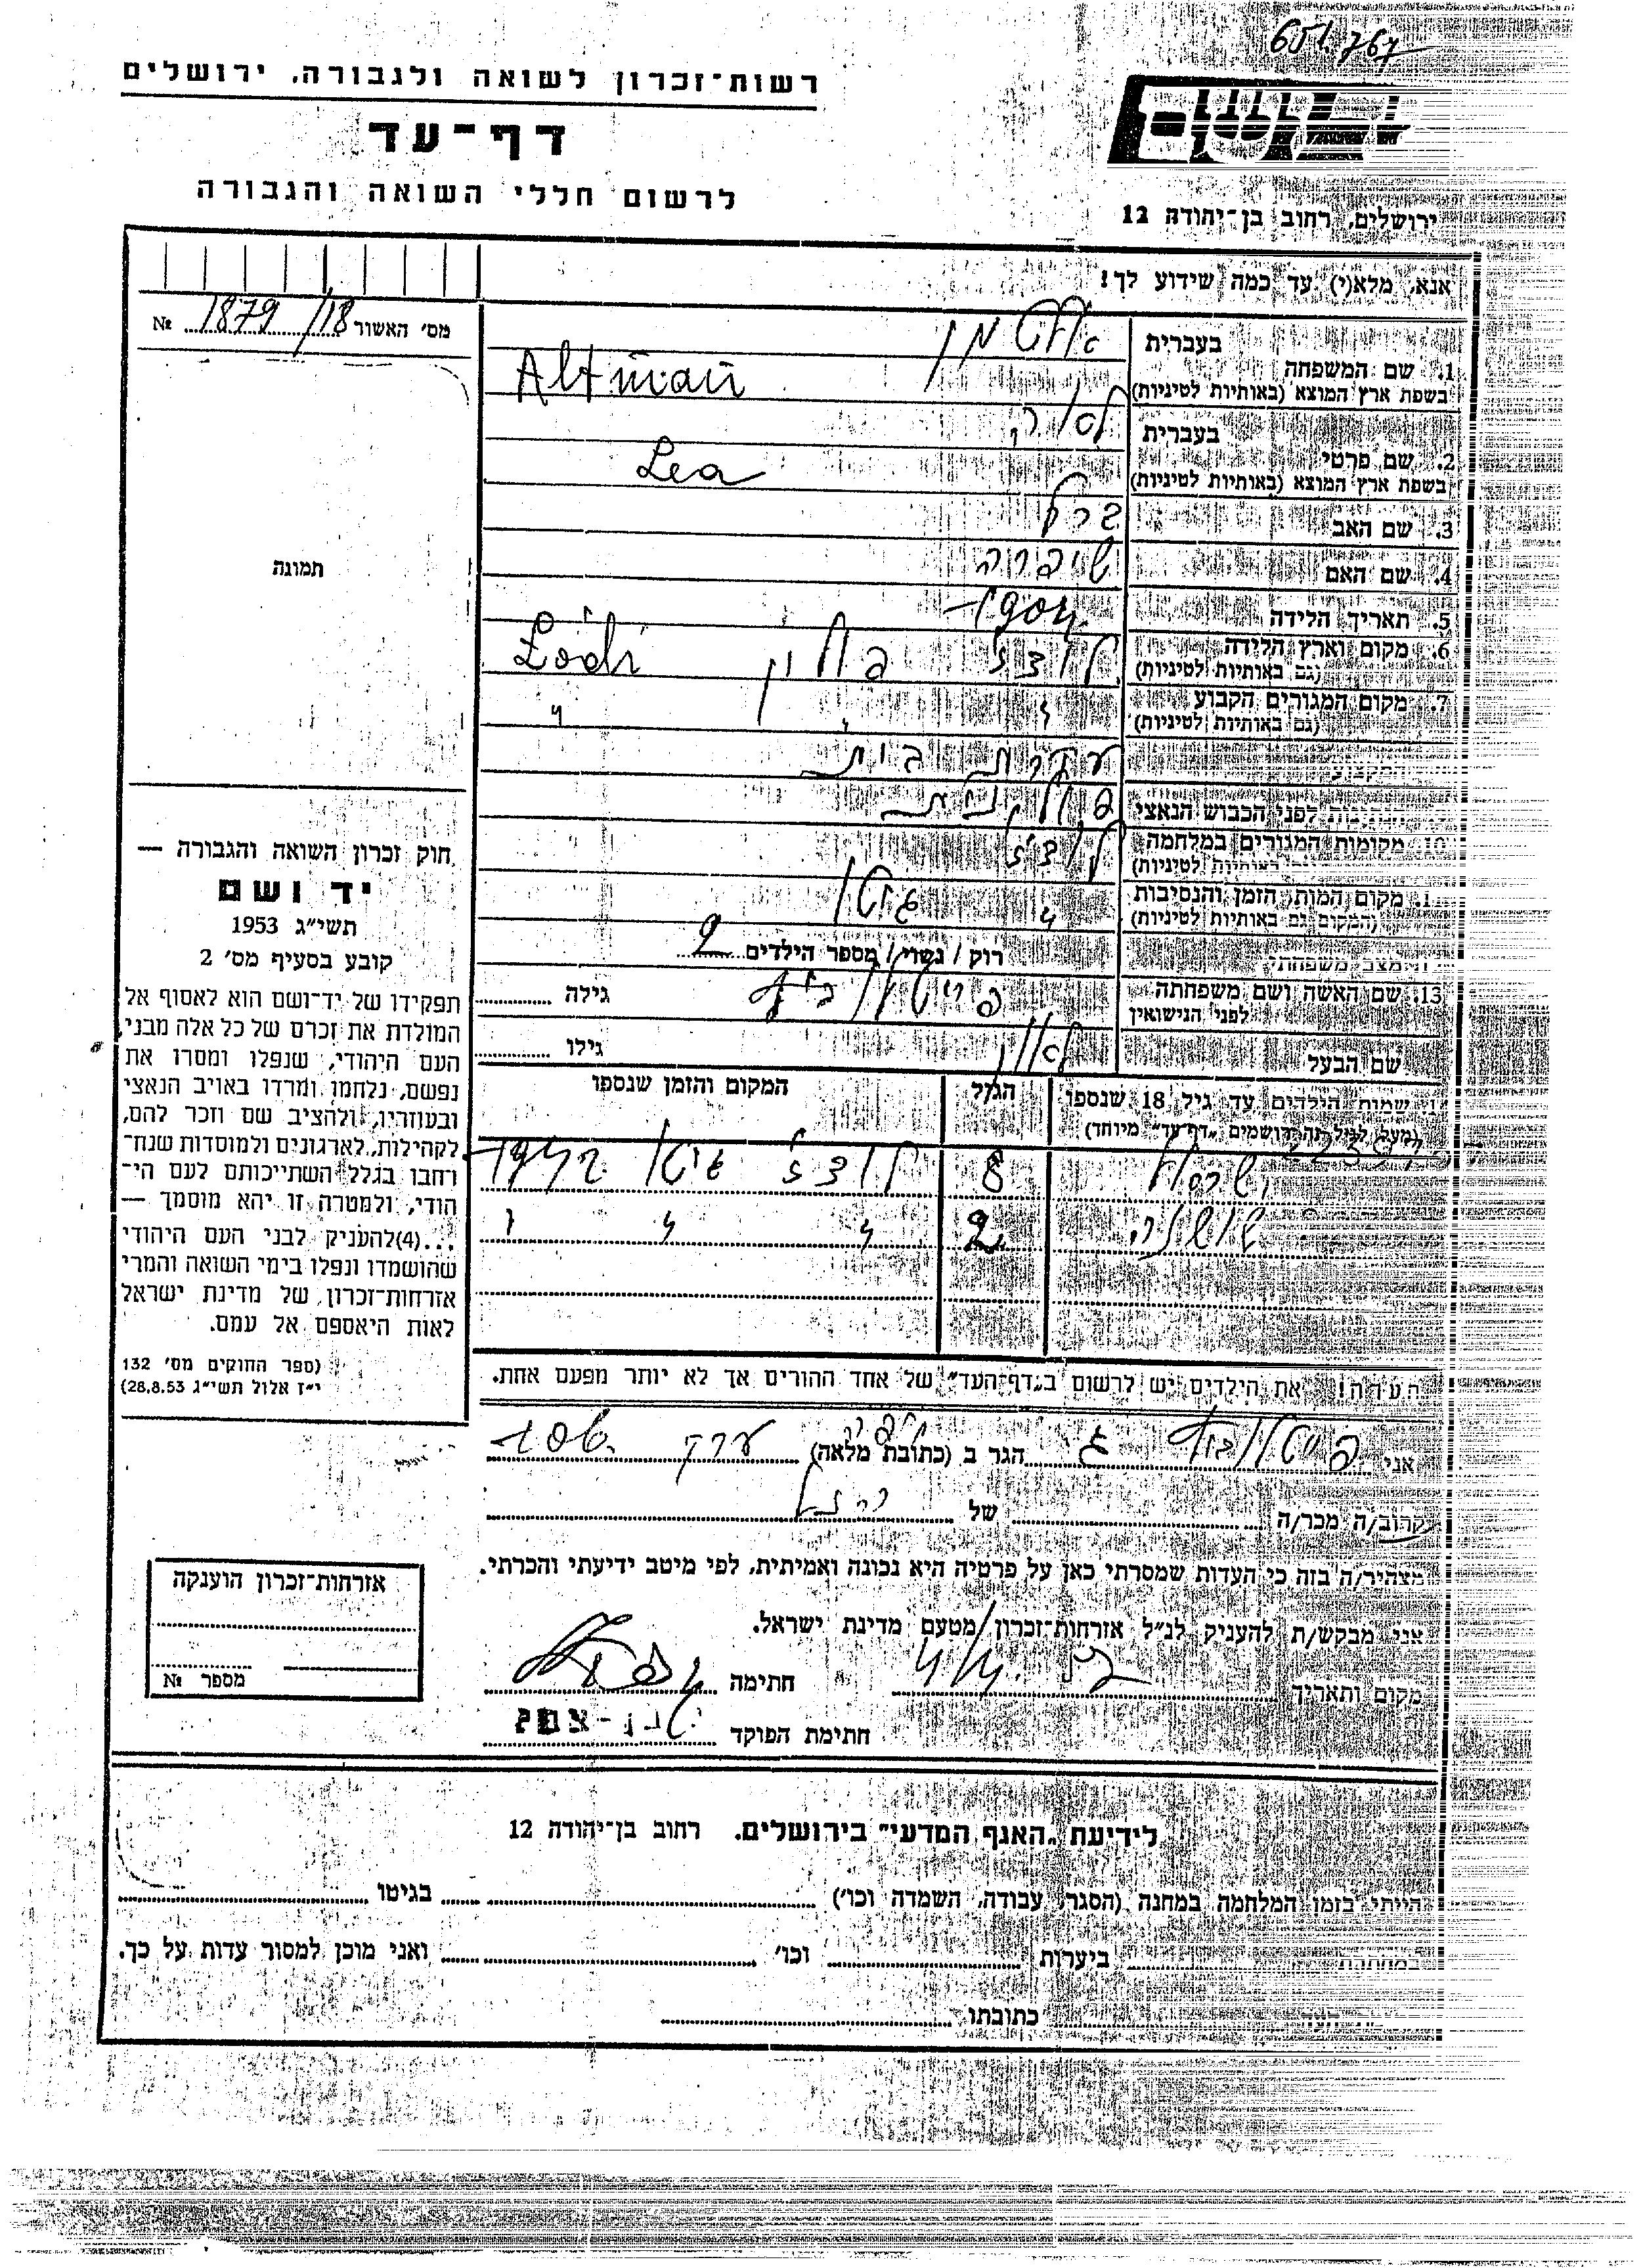 651.767
רשות־זכרון לשואה ולגבורה, ירושלים
דף־עד
לרשום חללי השואה והגבורה
ירושלים, רחוב בן־יהודה 12
אנא, מלא(י) עד כמה שידוע לך!
מס' האשור 1879/18 №
בעברית אלטמן
1. שם המשפחה
בשפת ארץ המוצא (באותיות לטיניות) Altman
בעברית לאה
2. שם פרטי
בשפת ארץ המוצא (באותיות לטיניות) Lea
3. שם האב
4. שם האם שיפרה
5. תאריך הלידה
6. מקום וארץ הלידה לודז' פולין Łódź
(גם באותיות לטיניות)
7. מקום המגורים הקבוע " " "
(גם באותיות לטיניות)
עקרת בית
לפני הכבוש הנאצי פולנית
מקומות המגורים במלחמה לודז'
לטיניות)
מקום המות, הזמן והנסיבות " גיטו
(המקום גם באותיות לטיניות)
מצב משפחתי רוק / נשוי / מספר הילדים 2
13. שם האשה ושם משפחתה גילה
לפני הנישואין
שם הבעל גילו
שמות הילדים עד גיל 18 שנספו הגיל המקום והזמן שנספו
(מעל לגיל זה רושמים „דף־עד" מיוחד)
ישראל 8 לודז' גיטו
שושנה 2 " " "
הערה! את הילדים יש לרשום ב„דף־העד" של אחד ההורים אך לא יותר מפעם אחת.
תמונה
חוק זכרון השואה והגבורה —
יד ושם
תשי"ג 1953
קובע בסעיף מס' 2
תפקידו של יד־ושם הוא לאסוף אל
המולדת את זכרם של כל אלה מבני
העם היהודי, שנפלו ומסרו את
נפשם, נלחמו ומרדו באויב הנאצי
ובעוזריו, ולהציב שם וזכר להם,
לקהילות, לארגונים ולמוסדות שנח־
רבו בגלל השתייכותם לעם הי־
הודי, ולמטרה זו יהא מוסמך —
...(4) להעניק לבני העם היהודי
שהושמדו ונפלו בימי השואה והמרי
אזרחות־זכרון של מדינת ישראל
לאות היאספם אל עמם.
(ספר החוקים מס' 132
י"ז אלול תשי"ג 28.8.53)
אני הגר ב (כתובת מלאה)
קרוב/ה מכר/ה של
מצהיר/ה בזה כי העדות שמסרתי כאן על פרטיה היא נכונה ואמיתית, לפי מיטב ידיעתי והכרתי.
אני מבקש/ת להעניק לנ"ל אזרחות־זכרון מטעם מדינת ישראל.
מקום ותאריך חתימה
חתימת הפוקד
אזרחות־זכרון הוענקה
מספר №
לידיעת „האגף המדעי" בירושלים. רחוב בן־יהודה 12
הייתי בזמן המלחמה במחנה (הסגר, עבודה, השמדה וכו') בגיטו
ביערות וכו' ואני מוכן למסור עדות על כך.
כתובתו